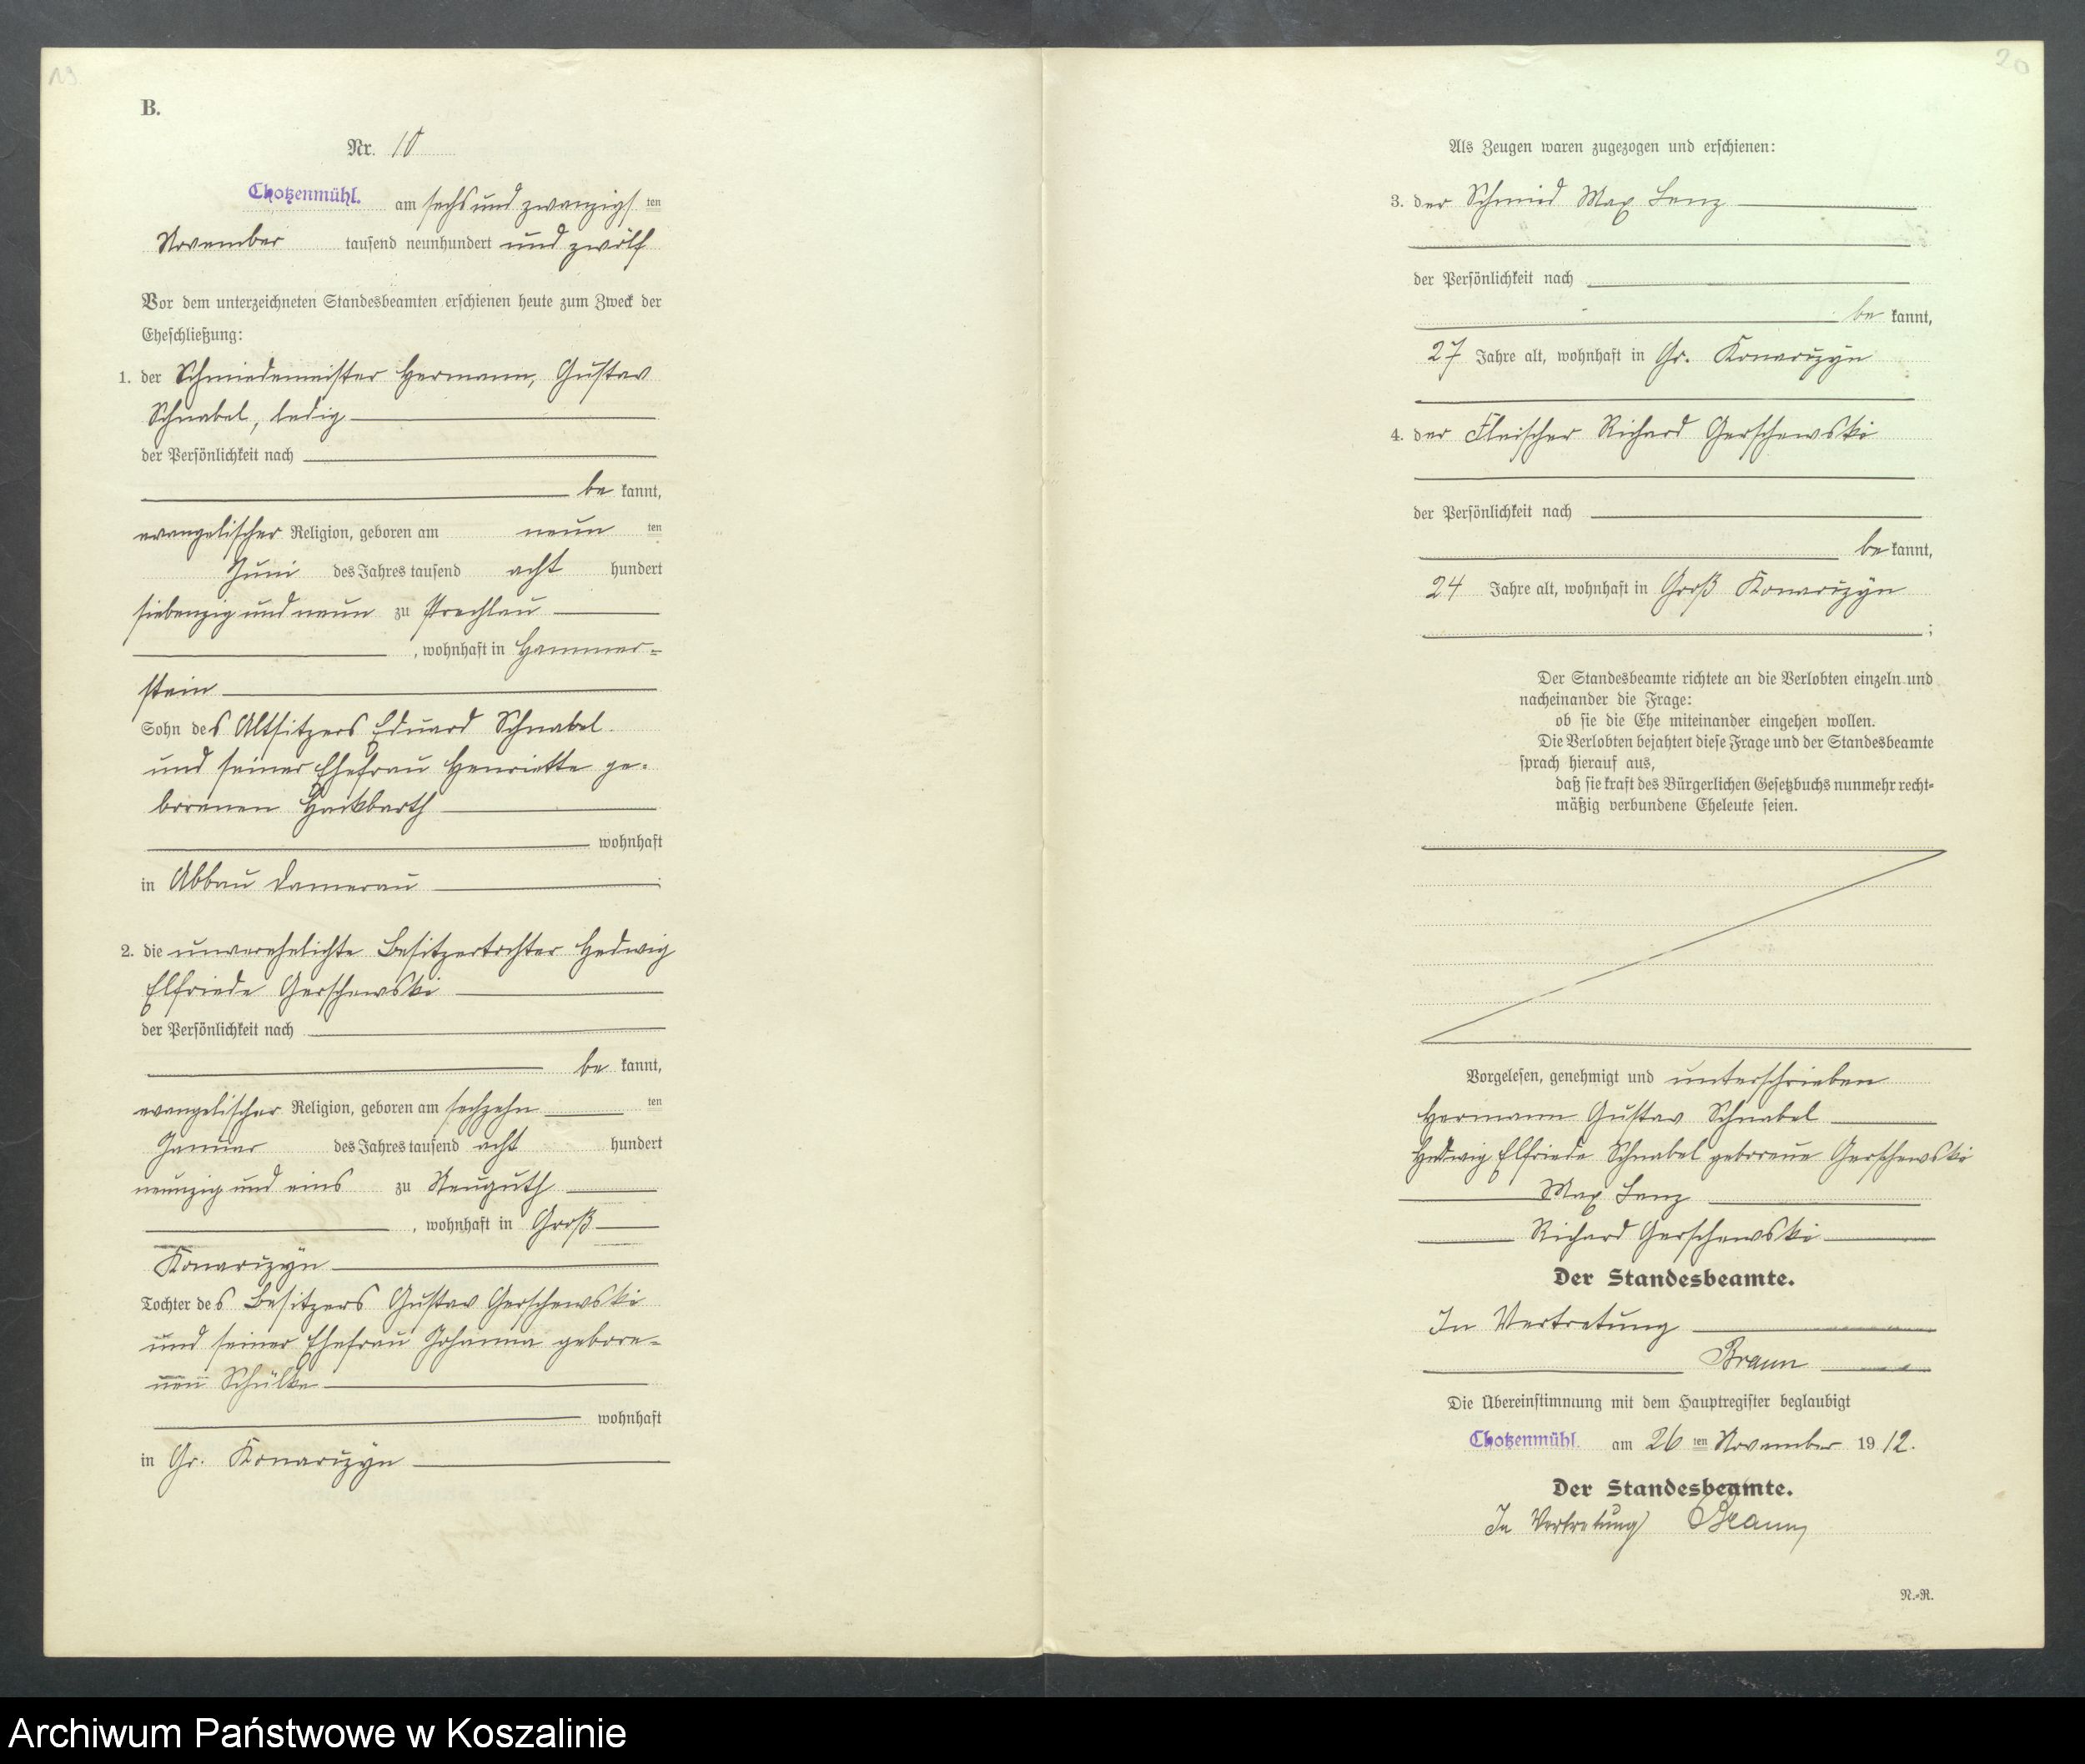 19
B.
Nr. 10
Chotzenmühl. am sechs und zwanzigs ten
November tausend neunhundert und zwölf
Vor dem unterzeichneten Standesbeamten erschienen heute zum Zweck der
Eheschließung:
1. der Schmiedemeister Hermann, Gustav
Schnabel, ledig
der Persönlichkeit nach
be kannt,
evangelischer Religion, geboren am neun ten
Juni des Jahres tausend acht hundert
siebenzig und neun zu Prechlau
, wohnhaft in Hammer=
stein
Sohn des Altsitzers Eduard Schnabel
und seiner Ehefrau Henriette ge-
borenen Hackbarth
wohnhaft
in Abbau Damerau ;
2. die unverehelichte Besitzertochter Hedwig
Elfriede Gerschewski
der Persönlichkeit nach
be kannt,
evangelischer Religion, geboren am sechzehn ten
Januar des Jahres tausend acht hundert
neunzig und eins zu Neuguth
, wohnhaft in Groß
Konarczyn
Tochter des Besitzers Gustav Gerschewski
und seiner Ehefrau Johanna gebore=
nen Schülke
wohnhaft
in Gr. Konarczyn
20
Als Zeugen waren zugezogen und erschienen:
3. der Schmied Max Lenz
der Persönlichkeit nach
be kannt,
27 Jahre alt, wohnhaft in Gr. Konarczyn
4. der Fleischer Richard Gerschewski
der Persönlichkeit nach
be kannt,
24 Jahre alt, wohnhaft in Groß Konarczyn
;
Der Standesbeamte richtete an die Verlobten einzeln und
nacheinander die Frage:
ob sie die Ehe miteinander eingehen wollen.
Die Verlobten bejahten diese Frage und der Standesbeamte
sprach hierauf aus,
daß sie kraft des Bürgerlichen Gesetzbuchs nunmehr recht=
mäßig verbundene Eheleute seien.
Vorgelesen, genehmigt und unterschrieben
Hermann Gustav Schnabel
Hedwig Elfriede Schnabel geborene Gerschewski
Max Lenz
Richard Gerschewski
Der Standesbeamte.
In Vertretung
Braun
Die Übereinstimmung mit dem Hauptregister beglaubigt
Chotzenmühl. am 26 ten November 19 12.
Der Standesbeamte.
In Vertretung Braun
N.-R.
Archiwum Państwowe w Koszalinie